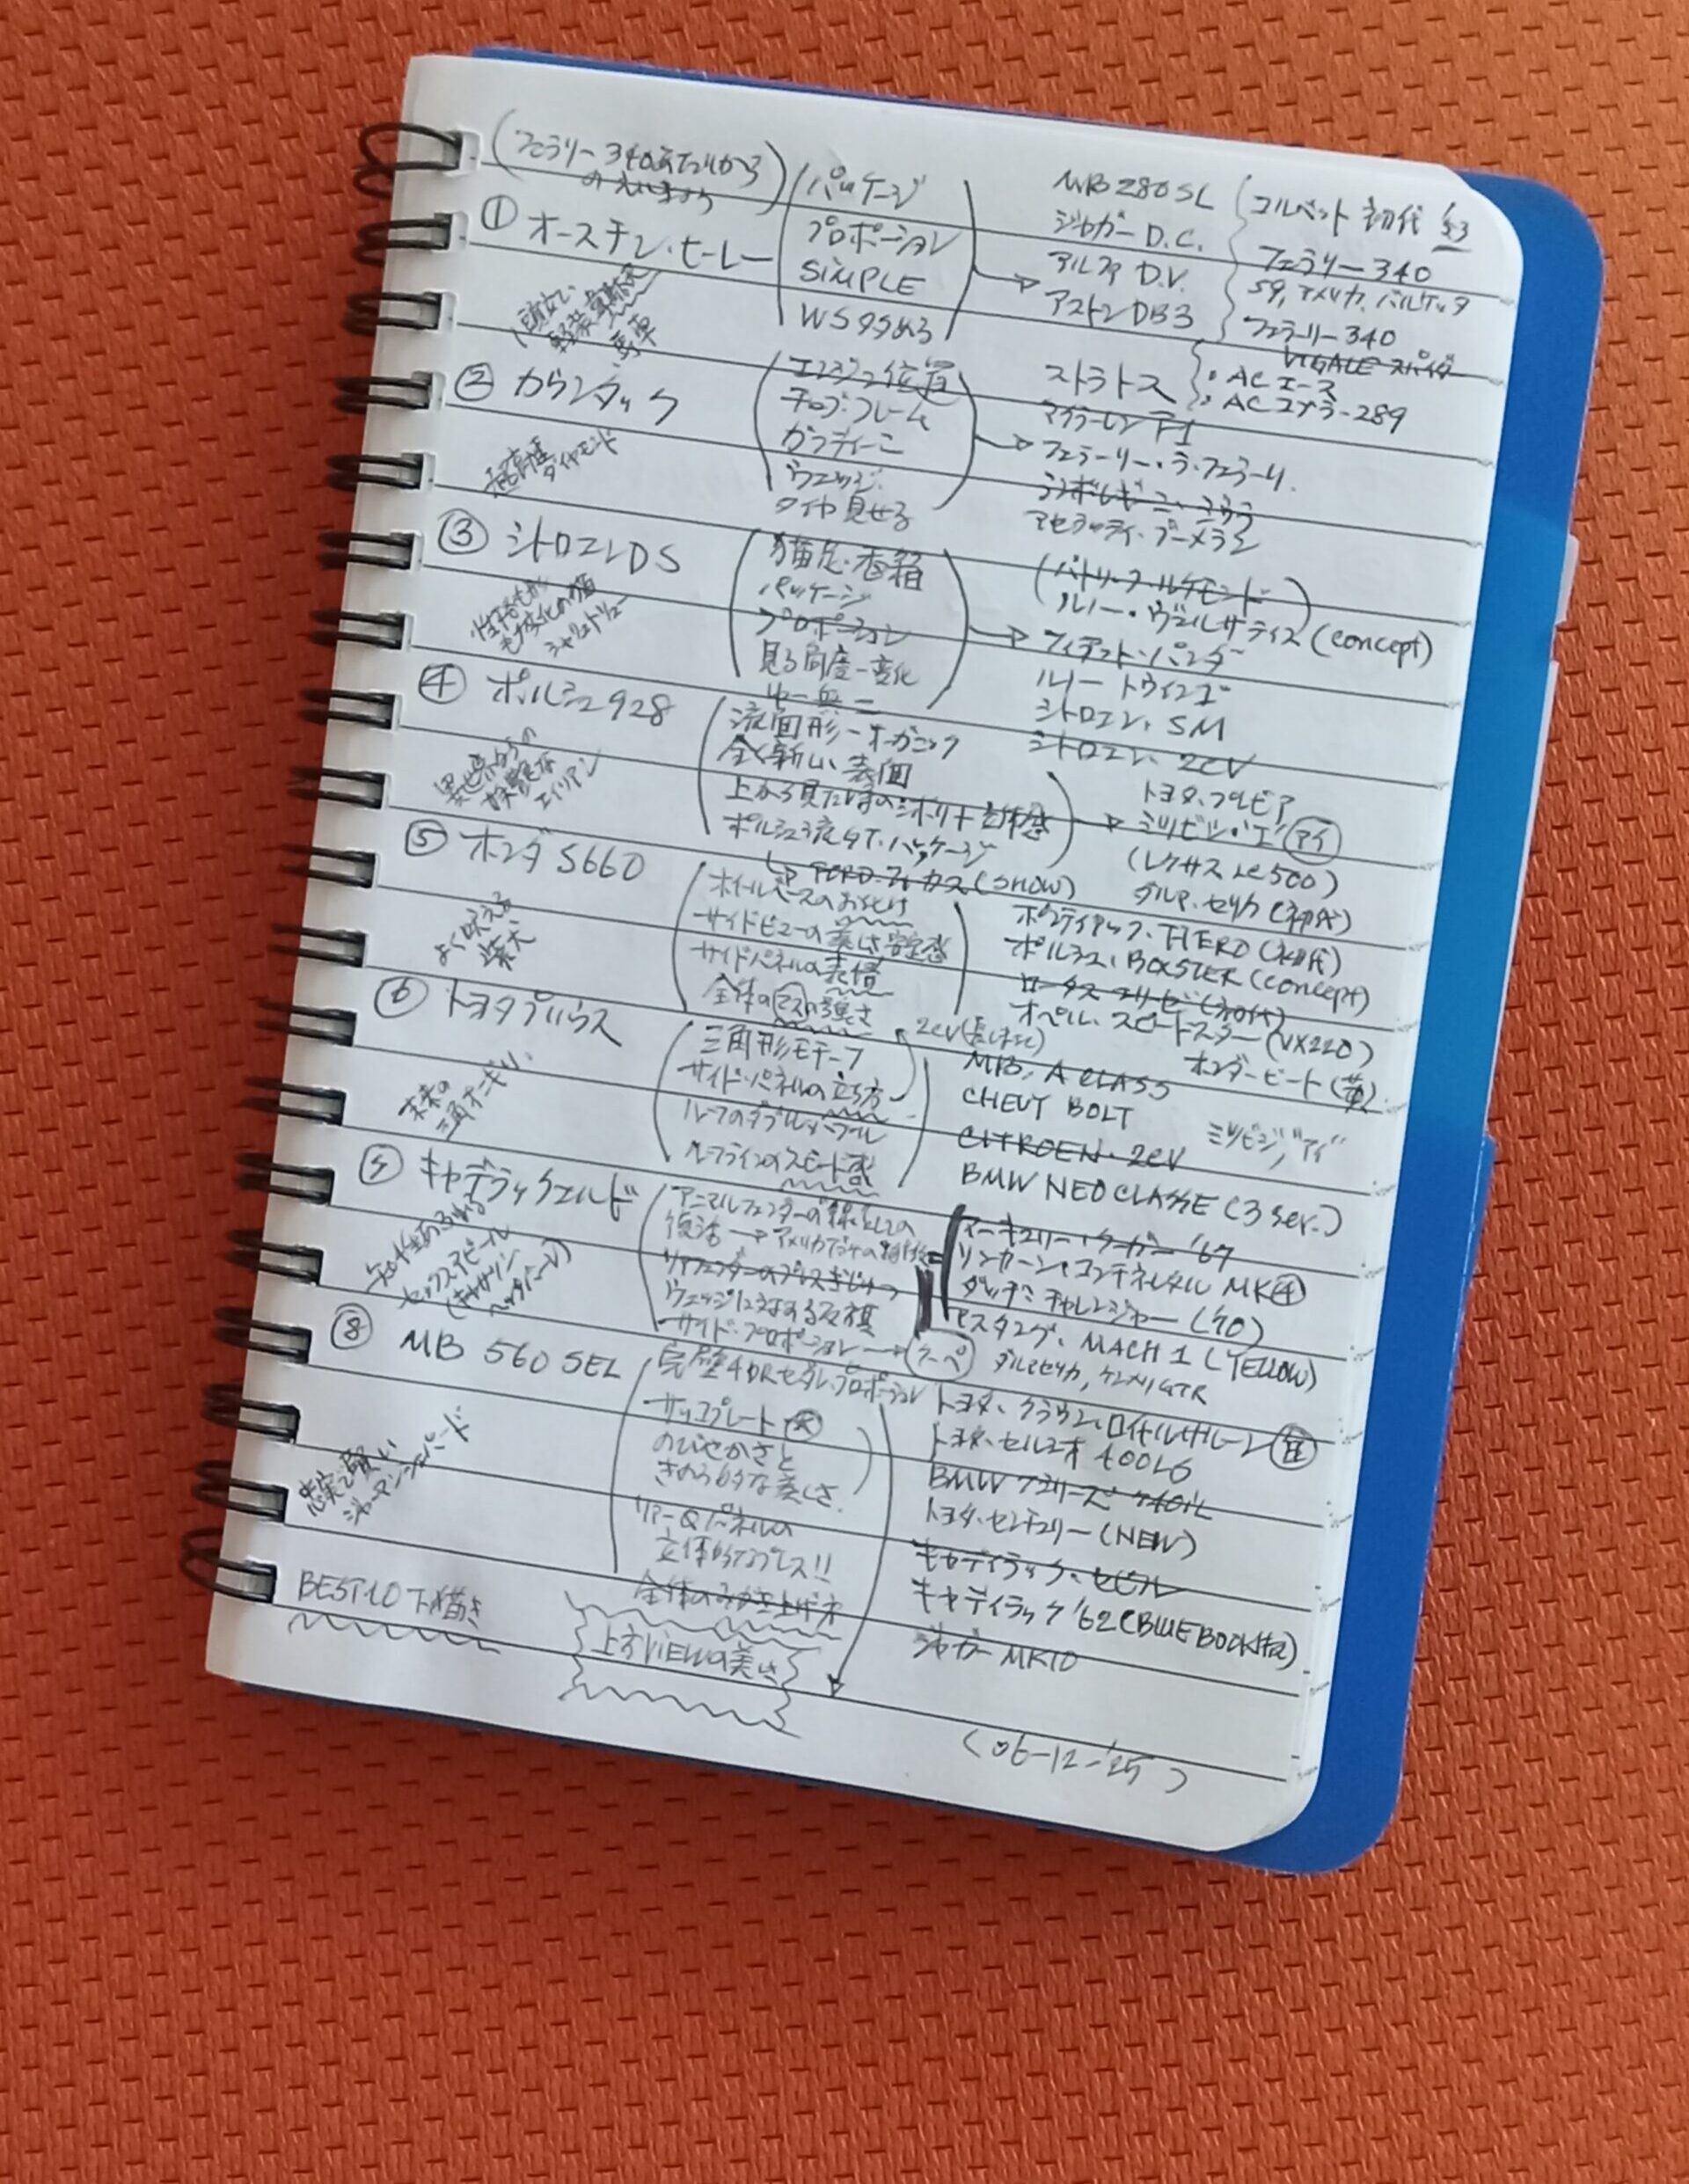 (フェラリー340あたりから
① オースチン・ヒーレー
パッケージ
プロポーション
SIMPLE
MB280SL
ジャガー D.C.
アルファ D.V.
アストンDB3
コルベット 初代
フェラリー340
59, アメリカ, バルケッタ
フェラリー340
VIGALE スパイダー
・ACエース
・ACコブラ-289
② カウンタック
超高価
ダイヤモンド
エンジン位置
チューブ・フレーム
ガンディーニ
ウェッジ
タイヤ見せる
ストラトス
マクラーレン F1
フェラーリー・ラ・フェラーリ
ランボルギーニ・ミウラ
マセラッティ・ブーメラン
③ シトロエンDS
猫足・香箱
パッケージ
プロポーション
見る角度-変化
ルノー・ヴェルサティス(concept)
フィアット・パンダ
ルノー トウィンゴ
シトロエン, SM
シトロエン, 2CV
④ ポルシェ928
異世界からの
エイリアン
流面形-オーガニック
全く新しい表面
上から見た時のシボリ+立体感
トヨタ, プレビア
ミツビシ・"i" アイ
(レクサス LC500)
ダルマ, セリカ (初代)
⑤ ホンダ S660
よく吠える
柴犬
ホイルベースのお化け
サイドビューの美しさ安定感
サイドパネルの表情
全体のマスの強さ
ポンティアック, FIERO (初代)
ポルシェ, BOXSTER (concept)
ロータス エリーゼ (初代)
オペル, スピードスター (VX220)
ホンダービート (黄)
⑥ トヨタプリウス
未来の
三角オニギリ
三角形モチーフ
サイド・パネルの立ち方
ルーフのダブルバブル
ルーフラインのスピード感
MB, A CLASS
CHEVY BOLT
CITROEN・2CV
ミツビシ, "アイ"
BMW NEO CLASSE (3 ser.)
キャデラックエルド
知性あふれる
セックスアピール
(キャサリン
ヘップバーン)
ウェッジに対する反旗
サイド・プロポーション → クーペ
マーキュリー・クーガー '67
リンカーン・コンチネンタル MK④
ダッヂ・チャレンジャー ('70)
マスタング, MACH 1 (YELLOW)
ダルマセリカ, ケンメリGTR
⑧ MB 560 SEL
忠実で賢い
ジャーマンシェパード
完璧4DRセダンプロポーション
サッコプレート
のびやかさと
リアーQパネルの
立体的なプレス!!
全体のみがき上げ方
上方VIEWの美しさ
トヨタ, クラウン, ロイヤルサルーン
トヨタ・セルシオ 400LG
BMW 7シリーズ 740iL
トヨタ・センチュリー (NEW)
キャディラック, セビル
キャディラック '62 (BLUE BOOK)
ジャガー MK10
BEST10下描き
(06-12-'25)